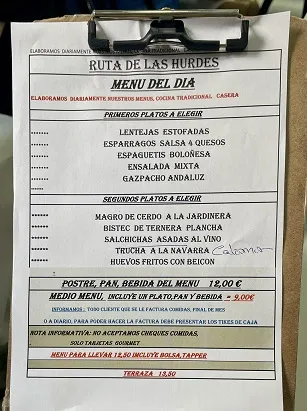 ELABORAMOS DIARIAMENTE
RUTA DE LAS HURDES
MENU DEL DIA
ELABORAMOS DIARIAMENTE NUESTROS MENUS, COCINA TRADICIONAL CASERA
PRIMEROS PLATOS A ELEGIR
....... LENTEJAS ESTOFADAS
....... ESPARRAGOS SALSA 4 QUESOS
....... ESPAGUETIS BOLOÑESA
....... ENSALADA MIXTA
....... GAZPACHO ANDALUZ
......
SEGUNDOS PLATOS A ELEGIR
....... MAGRO DE CERDO A LA JARDINERA
....... BISTEC DE TERNERA PLANCHA
....... SALCHICHAS ASADAS AL VINO
....... TRUCHA A LA NAVARRA
....... HUEVOS FRITOS CON BEICON
POSTRE, PAN, BEBIDA DEL MENU 12,00 €
MEDIO MENU, INCLUYE UN PLATO,PAN Y BEBIDA = 9,00€
INFORMAMOS : TODO CLIENTE QUE SE LE FACTURA COMIDAS, FINAL DE MES
O A DIARIO, PARA PODER HACER LA FACTURA DEBE PRESENTAR LOS TIKES DE CAJA
NOTA INFORMATIVA: NO ACEPTAMOS CHEQUES COMIDAS,
SOLO TARJETAS GOURMET
MENU PARA LLEVAR 12,50 INCLUYE BOLSA,TAPPER
TERRAZA 13,50